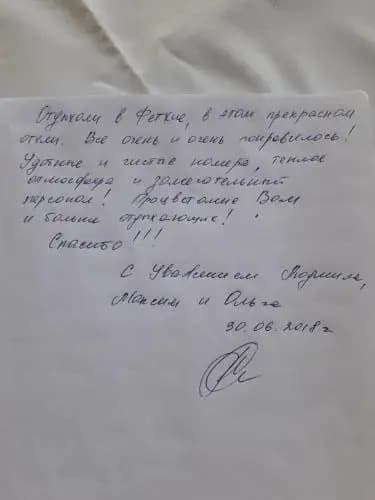 Отдыхали в Фетхие, в этом прекрасном
отели. Все очень и очень понравилось!
Удобные и чистые номера, теплая
атмосфера и замечательный
персонал! Процветание Вам
и больше отдыхающих!
Спасибо!!!
С Уважением Людмила,
Максим и Ольга
30.06.2018г